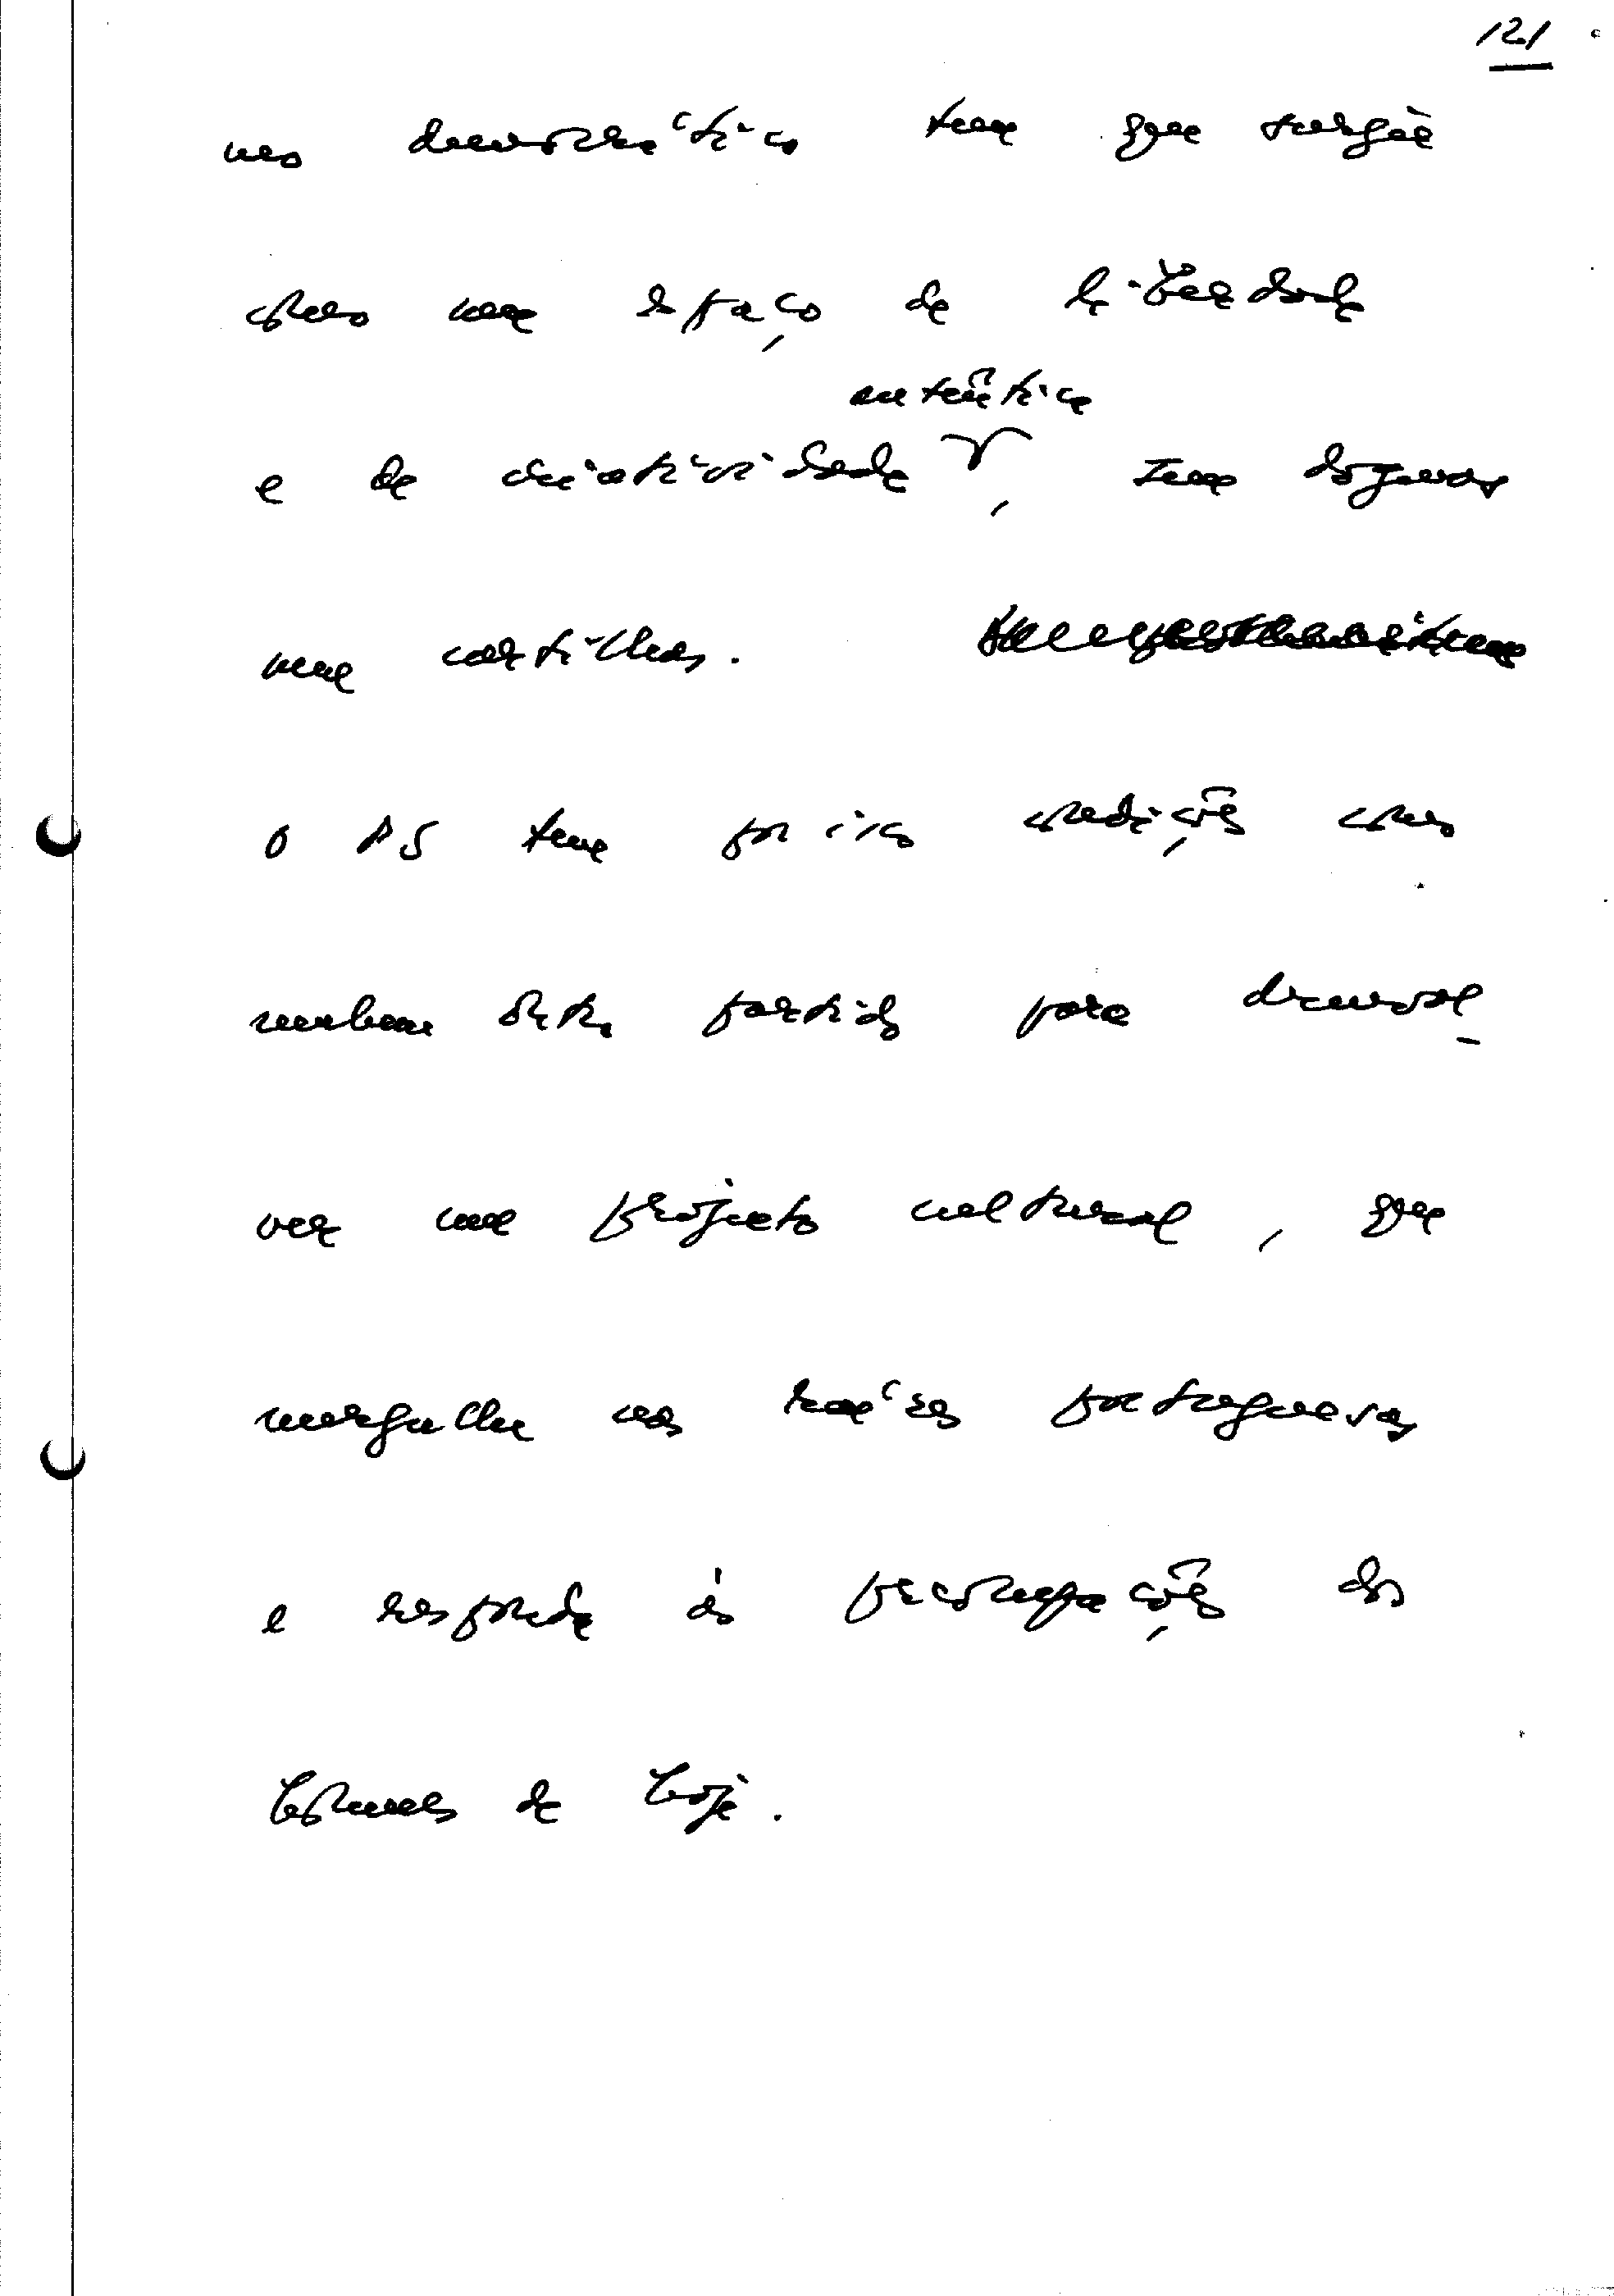 121
mo democrático tem que surgir
como um espaço de liberdade
autêntica
e de criatividade, sem dogmas
nem cartilhas.
O PS tem por isso condições como
nenhum outro partido para desenvol_
ver um projecto cultural, que
mergulhe nas raízes portuguesas
e responda às preocupações dos
homens de hoje.